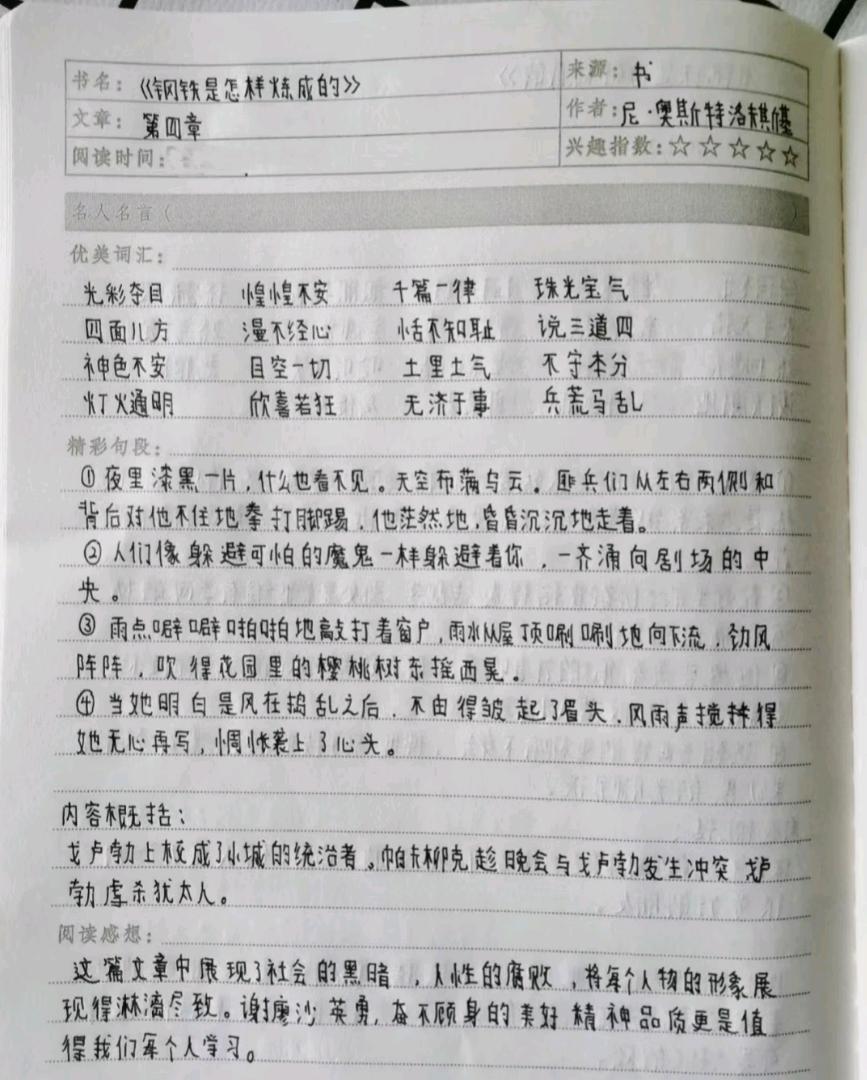 书名：《钢铁是怎样炼成的》 来源：书
文章：第四章 作者：尼·奥斯特洛夫斯基
阅读时间： 兴趣指数：☆☆☆☆☆
名人名言（ ）
优美词汇：
光彩夺目 惶惶不安 千篇一律 珠光宝气
四面八方 漫不经心 恬不知耻 说三道四
神色不安 目空一切 土里土气 不守本分
灯火通明 欣喜若狂 无济于事 兵荒马乱
精彩句段：
①夜里漆黑一片，什么也看不见。天空布满乌云。匪兵们从左右两侧和
背后对他不住地拳打脚踢，他茫然地，昏昏沉沉地走着。
②人们像躲避可怕的魔鬼一样躲避着你，一齐涌向剧场的中
央。
③雨点噼噼啪啪地敲打着窗户，雨水从屋顶唰唰地向下流，劲风
阵阵，吹得花园里的樱桃树东摇西晃。
④当她明白是风在捣乱之后，不由得皱起了眉头，风雨声搅拌得
她无心再写，惆怅袭上了心头。
内容概括：
戈卢勃上校成了小城的统治者。帕卡柳克趁晚会与戈卢勃发生冲突 戈卢
勃虐杀犹太人。
阅读感想：
这篇文章中展现了社会的黑暗，人性的腐败，将每个人物的形象展
现得淋漓尽致。谢廖沙英勇，奋不顾身的美好精神品质更是值
得我们每个人学习。